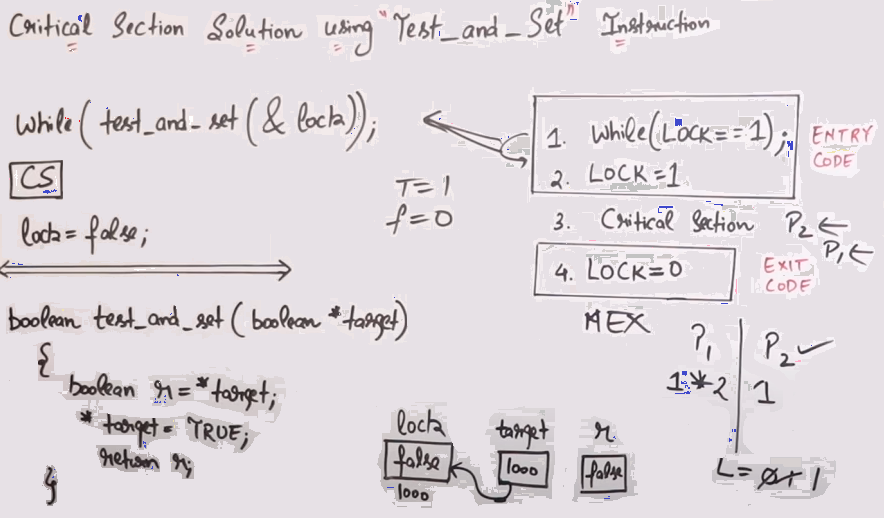 Critical Section Solution using "Test_and_Set" Instruction
while( test_and_set (& lock));
CS
lock = false;
T=1
f=0
1. While(LOCK==1);
2. LOCK=1
ENTRY
CODE
3. Critical Section P2 ←
P1 ←
4. LOCK=0
EXIT
CODE
boolean test_and_set (boolean *target)
{
boolean r = *target;
*target = TRUE;
return r;
}
MEX
P1 | P2 ✓
1 * 2 | 1
L = 0 1 1
lock target r
false 1000 false
1000